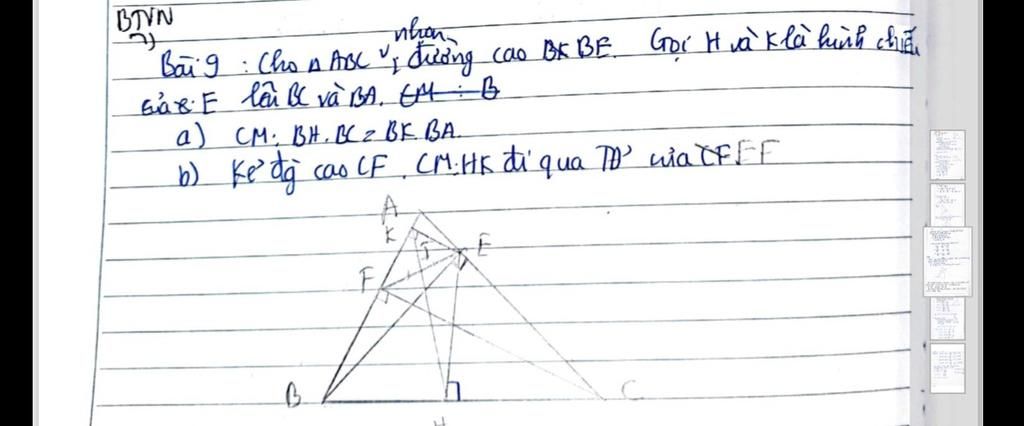 BTVN
7)
nhọn
Bài 9 : Cho Δ ABC , đường cao BK BE. Gọi H và K là hình chiếu
của E lên BC và BA. CM : B
a) CM: BH.BC = BK.BA.
b) Kẻ đg cao CF. CM: HK đi qua TĐ' của CF EF
A
K
I
E
F
B
C
H